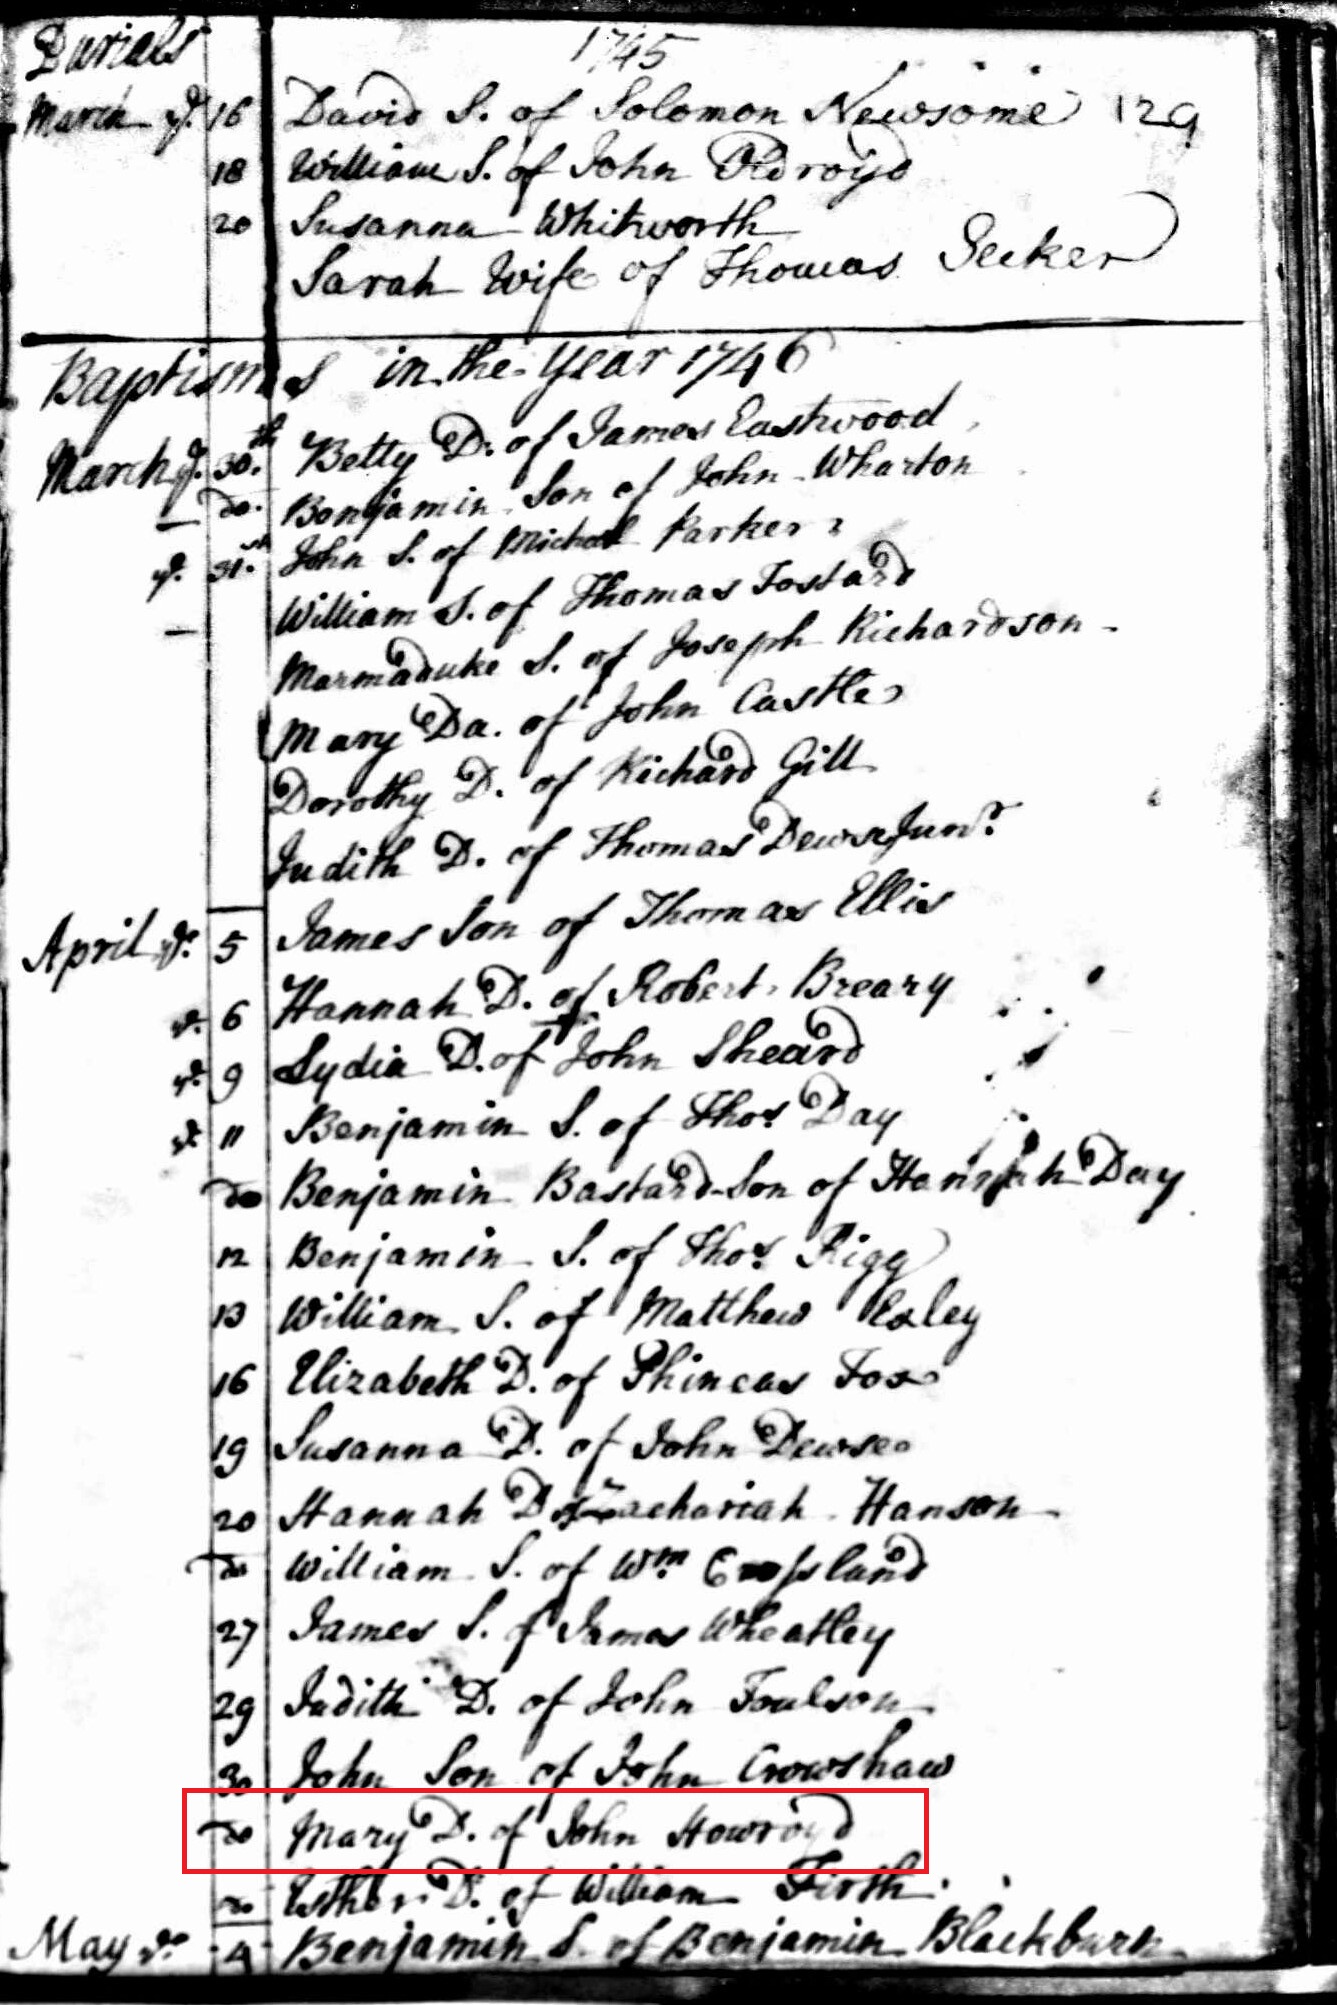 Burials 1745
March ye. 16 David S. of Solomon Newsome 129
18 William S. of John Oldroyd
20 Susanna Whitworth
Sarah Wife of Thomas Secker
Baptisms in the Year 1746
March ye. 30th. Betty D. of James Eastwood
Do. Benjamin Son of John Wharton
ye. 31st. John S. of Michael Parker
William S. of Thomas Tostard
Marmaduke S. of Joseph Richardson
Mary Da. of John Castle
Dorothy D. of Richard Gill
Judith D. of Thomas Dewse Junr.
April ye. 5 James Son of Thomas Ellis
ye. 6 Hannah D. of Robert Breary
ye. 9 Lydia D. of John Sheard
ye. 11 Benjamin S. of Thos. Day
Do Benjamin Bastard-Son of Hannah Day
12 Benjamin S. of Thos. Rigg
13 William S. of Matthew Exley
16 Elizabeth D. of Phineas Fox
19 Susanna D. of John Dewse
20 Hannah D. of Zachariah Hanson
Do William S. of Wm. Crossland
27 James S. of James Wheatley
29 Judith D. of John Foulson
30 John Son of John Crowshaw
Do Mary D. of John Howroyd
Do Esther D. of William Firth
May ye. 4 Benjamin S. of Benjamin Blackburn